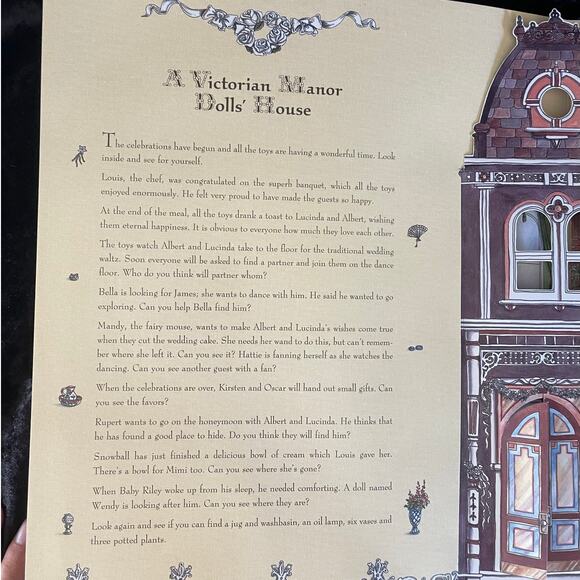 A Victorian Manor
Dolls' House
The celebrations have begun and all the toys are having a wonderful time. Look
inside and see for yourself.
Louis, the chef, was congratulated on the superb banquet, which all the toys
enjoyed enormously. He felt very proud to have made the guests so happy.
At the end of the meal, all the toys drank a toast to Lucinda and Albert, wishing
them eternal happiness. It is obvious to everyone how much they love each other.
The toys watch Albert and Lucinda take to the floor for the traditional wedding
waltz. Soon everyone will be asked to find a partner and join them on the dance
floor. Who do you think will partner whom?
Bella is looking for James; she wants to dance with him. He said he wanted to go
exploring. Can you help Bella find him?
Mandy, the fairy mouse, wants to make Albert and Lucinda's wishes come true
when they cut the wedding cake. She needs her wand to do this, but can't remem-
ber where she left it. Can you see it? Hattie is fanning herself as she watches the
dancing. Can you see another guest with a fan?
When the celebrations are over, Kirsten and Oscar will hand out small gifts. Can
you see the favors?
Rupert wants to go on the honeymoon with Albert and Lucinda. He thinks that
he has found a good place to hide. Do you think they will find him?
Snowball has just finished a delicious bowl of cream which Louis gave her.
There's a bowl for Mimi too. Can you see where she's gone?
When Baby Riley woke up from his sleep, he needed comforting. A doll named
Wendy is looking after him. Can you see where they are?
Look again and see if you can find a jug and washbasin, an oil lamp, six vases and
three potted plants.